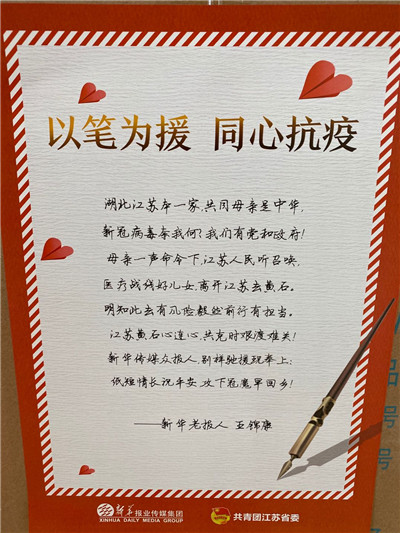 以笔为援 同心抗疫
湖北江苏本一家,共同母亲是中华,
新冠病毒奈我何?我们有党和政府!
母亲一声命令下,江苏人民听召唤,
医疗战线好儿女,离开江苏去黄石。
明知此去有风险毅然前行有担当。
江苏黄石心连心,共克时艰渡难关!
新华传媒众报人,别样驰援视奉上:
纸短情长祝平安,攻下冠魔早回乡!
——新华老报人 王锦康
新华报业传媒集团
XINHUA DAILY MEDIA GROUP
共青团江苏省委
品
号
号